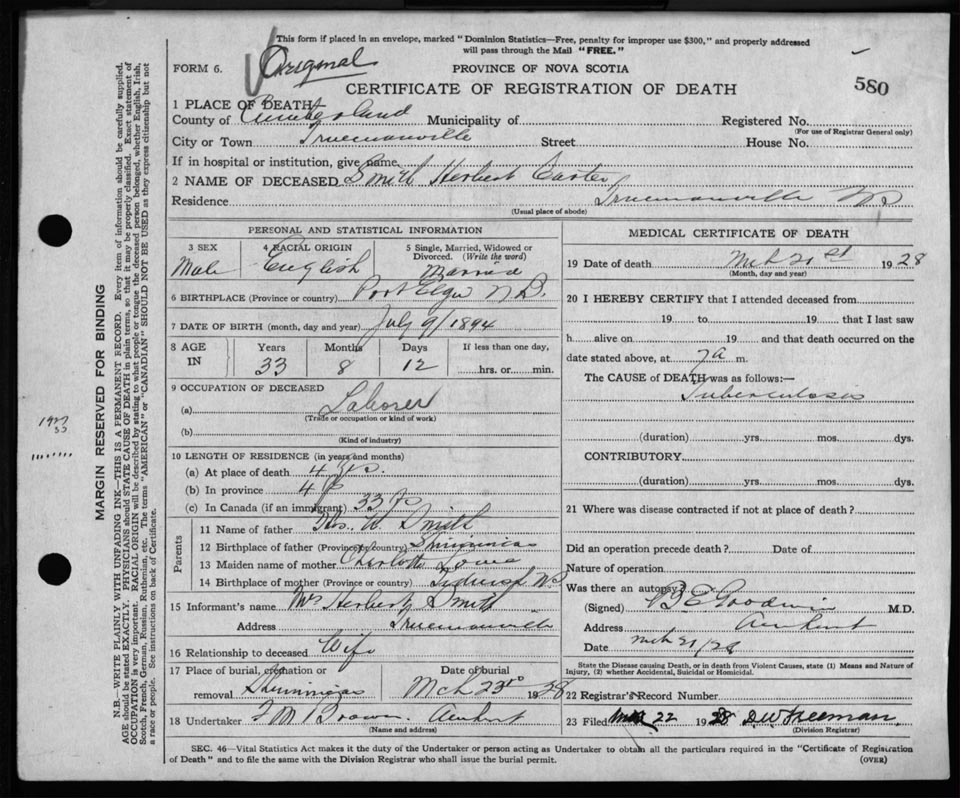 This form if placed in an envelope, marked "Dominion Statistics—Free, penalty for improper use $300," and properly addressed
will pass through the Mail "FREE."
FORM 6. Original PROVINCE OF NOVA SCOTIA
CERTIFICATE OF REGISTRATION OF DEATH 580
1 PLACE OF DEATH
County of Cumberland Municipality of Registered No.
(For use of Registrar General only)
City or Town Truemanville Street House No.
If in hospital or institution, give name
2 NAME OF DECEASED Smith Herbert Carter
Residence Truemanville NS
(Usual place of abode)
PERSONAL AND STATISTICAL INFORMATION
3 SEX 4 RACIAL ORIGIN 5 Single, Married, Widowed or
Divorced. (Write the word)
Male English Married
6 BIRTHPLACE (Province or country) Port Elgin N.B.
7 DATE OF BIRTH (month, day and year) July 9/1894
8 AGE IN Years Months Days If less than one day,
33 8 12 hrs. or min.
9 OCCUPATION OF DECEASED
(a) Laborer
(Trade or occupation or kind of work)
(b)
(Kind of industry)
10 LENGTH OF RESIDENCE (in years and months)
(a) At place of death 4 yrs.
(b) In province 4
(c) In Canada (if an immigrant) 33
Parents
11 Name of father W. Smith
12 Birthplace of father (Province or country) Shinimicas
13 Maiden name of mother Charlotte
14 Birthplace of mother (Province or country) Tidnish N.S.
15 Informant's name Mrs Herbert Smith
Address Truemanville
16 Relationship to deceased Wife
17 Place of burial, cremation or Date of burial
removal Shinimicas Mch 23rd 1928
18 Undertaker F M Brown Amherst
(Name and address)
MEDICAL CERTIFICATE OF DEATH
19 Date of death Mch 21st 1928
(Month, day and year)
20 I HEREBY CERTIFY that I attended deceased from
19 to 19 that I last saw
h alive on 19 and that death occurred on the
date stated above, at 7a m.
The CAUSE of DEATH was as follows:—
Tuberculosis
(duration) yrs. mos. dys.
CONTRIBUTORY
(duration) yrs. mos. dys.
21 Where was disease contracted if not at place of death?
Did an operation precede death? Date of
Nature of operation
Was there an autopsy?
(Signed) B E Goodwin M.D.
Address Amherst
Date mch 21/28
State the Disease causing Death, or in death from Violent Causes, state (1) Means and Nature of
Injury, (2) whether Accidental, Suicidal or Homicidal.
22 Registrar's Record Number
23 Filed 22 1928 D.W. Freeman.
(Division Registrar)
SEC. 46—Vital Statistics Act makes it the duty of the Undertaker or person acting as Undertaker to obtain all the particulars required in the "Certificate of Registration
of Death" and to file the same with the Division Registrar who shall issue the burial permit. (OVER)
MARGIN RESERVED FOR BINDING
N.B.—WRITE PLAINLY WITH UNFADING INK—THIS IS A PERMANENT RECORD. Every item of information should be carefully supplied.
AGE should be stated EXACTLY. PHYSICIANS should STATE CAUSE OF DEATH in plain terms, so that it may be properly classified. Exact statement of
OCCUPATION is very important. RACIAL ORIGIN will be described by stating to what people or tongue the deceased person belonged, whether English, Irish,
Scotch, French, German, Russian, Ruthenian, etc. The terms "AMERICAN" or "CANADIAN" SHOULD NOT BE USED as they express citizenship but not
a race or people. See instructions on back of Certificate.